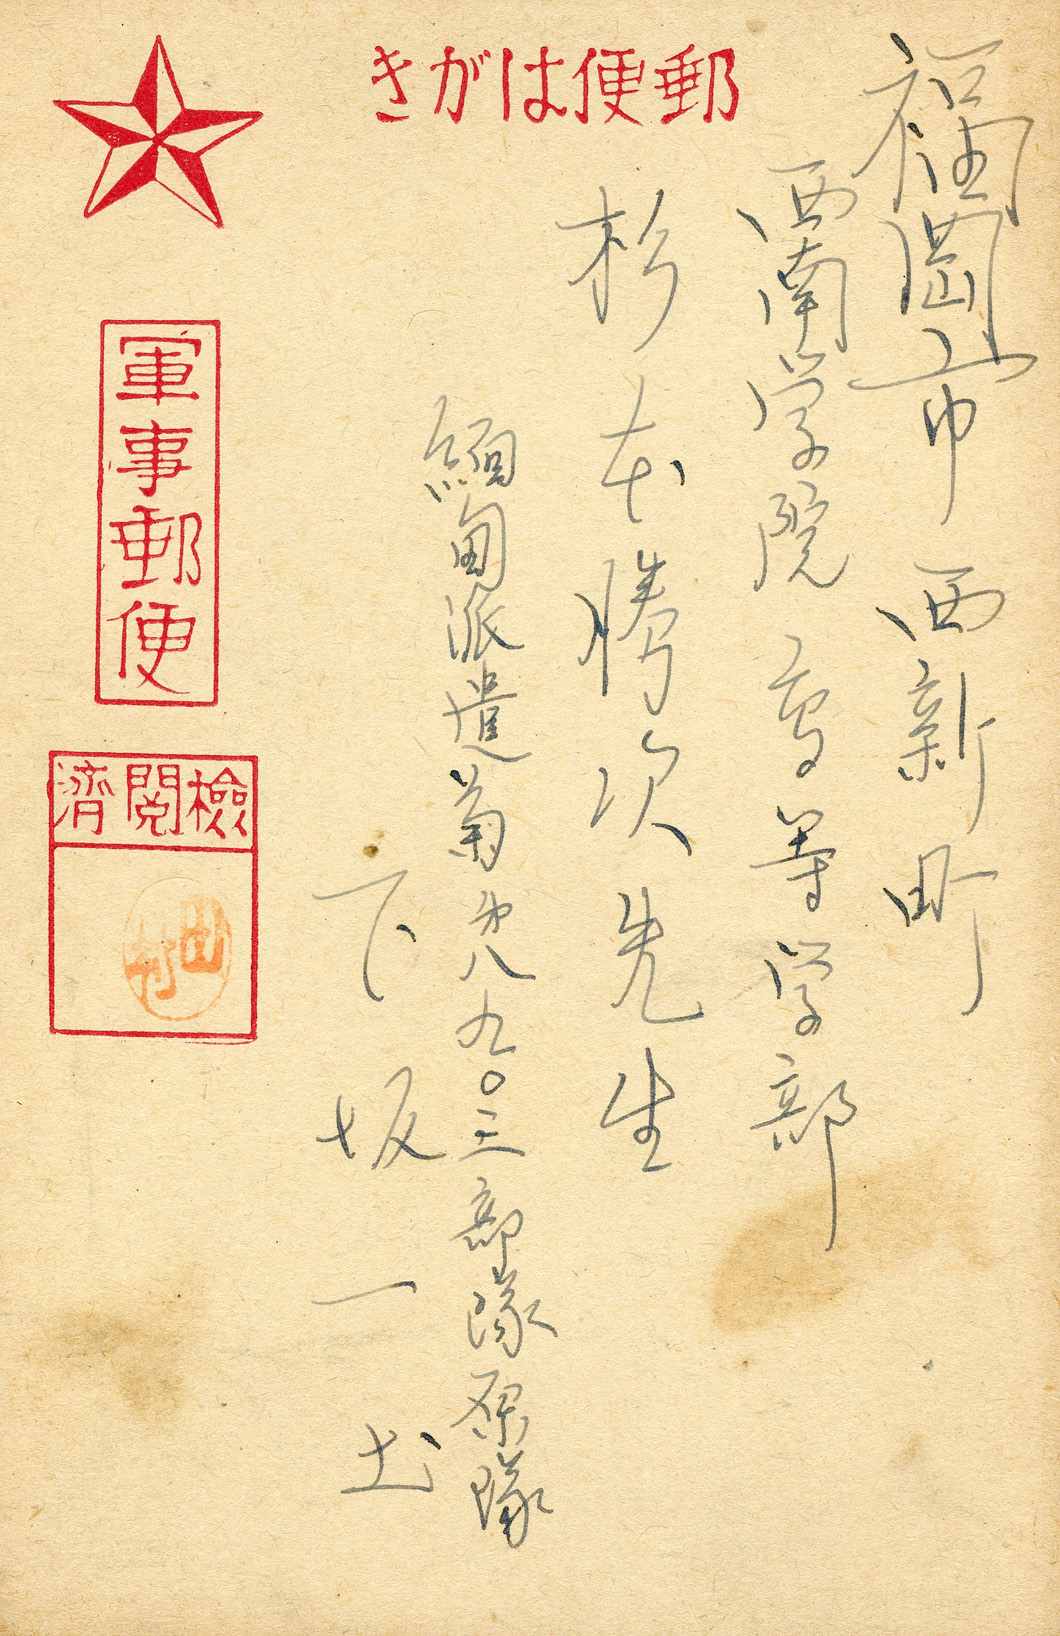 郵便はがき
福岡市西新町
西南学院高等学部
杉本勝次先生
緬甸派遣菊第八九〇三部隊原隊
下坂一士
軍事郵便
檢閲濟